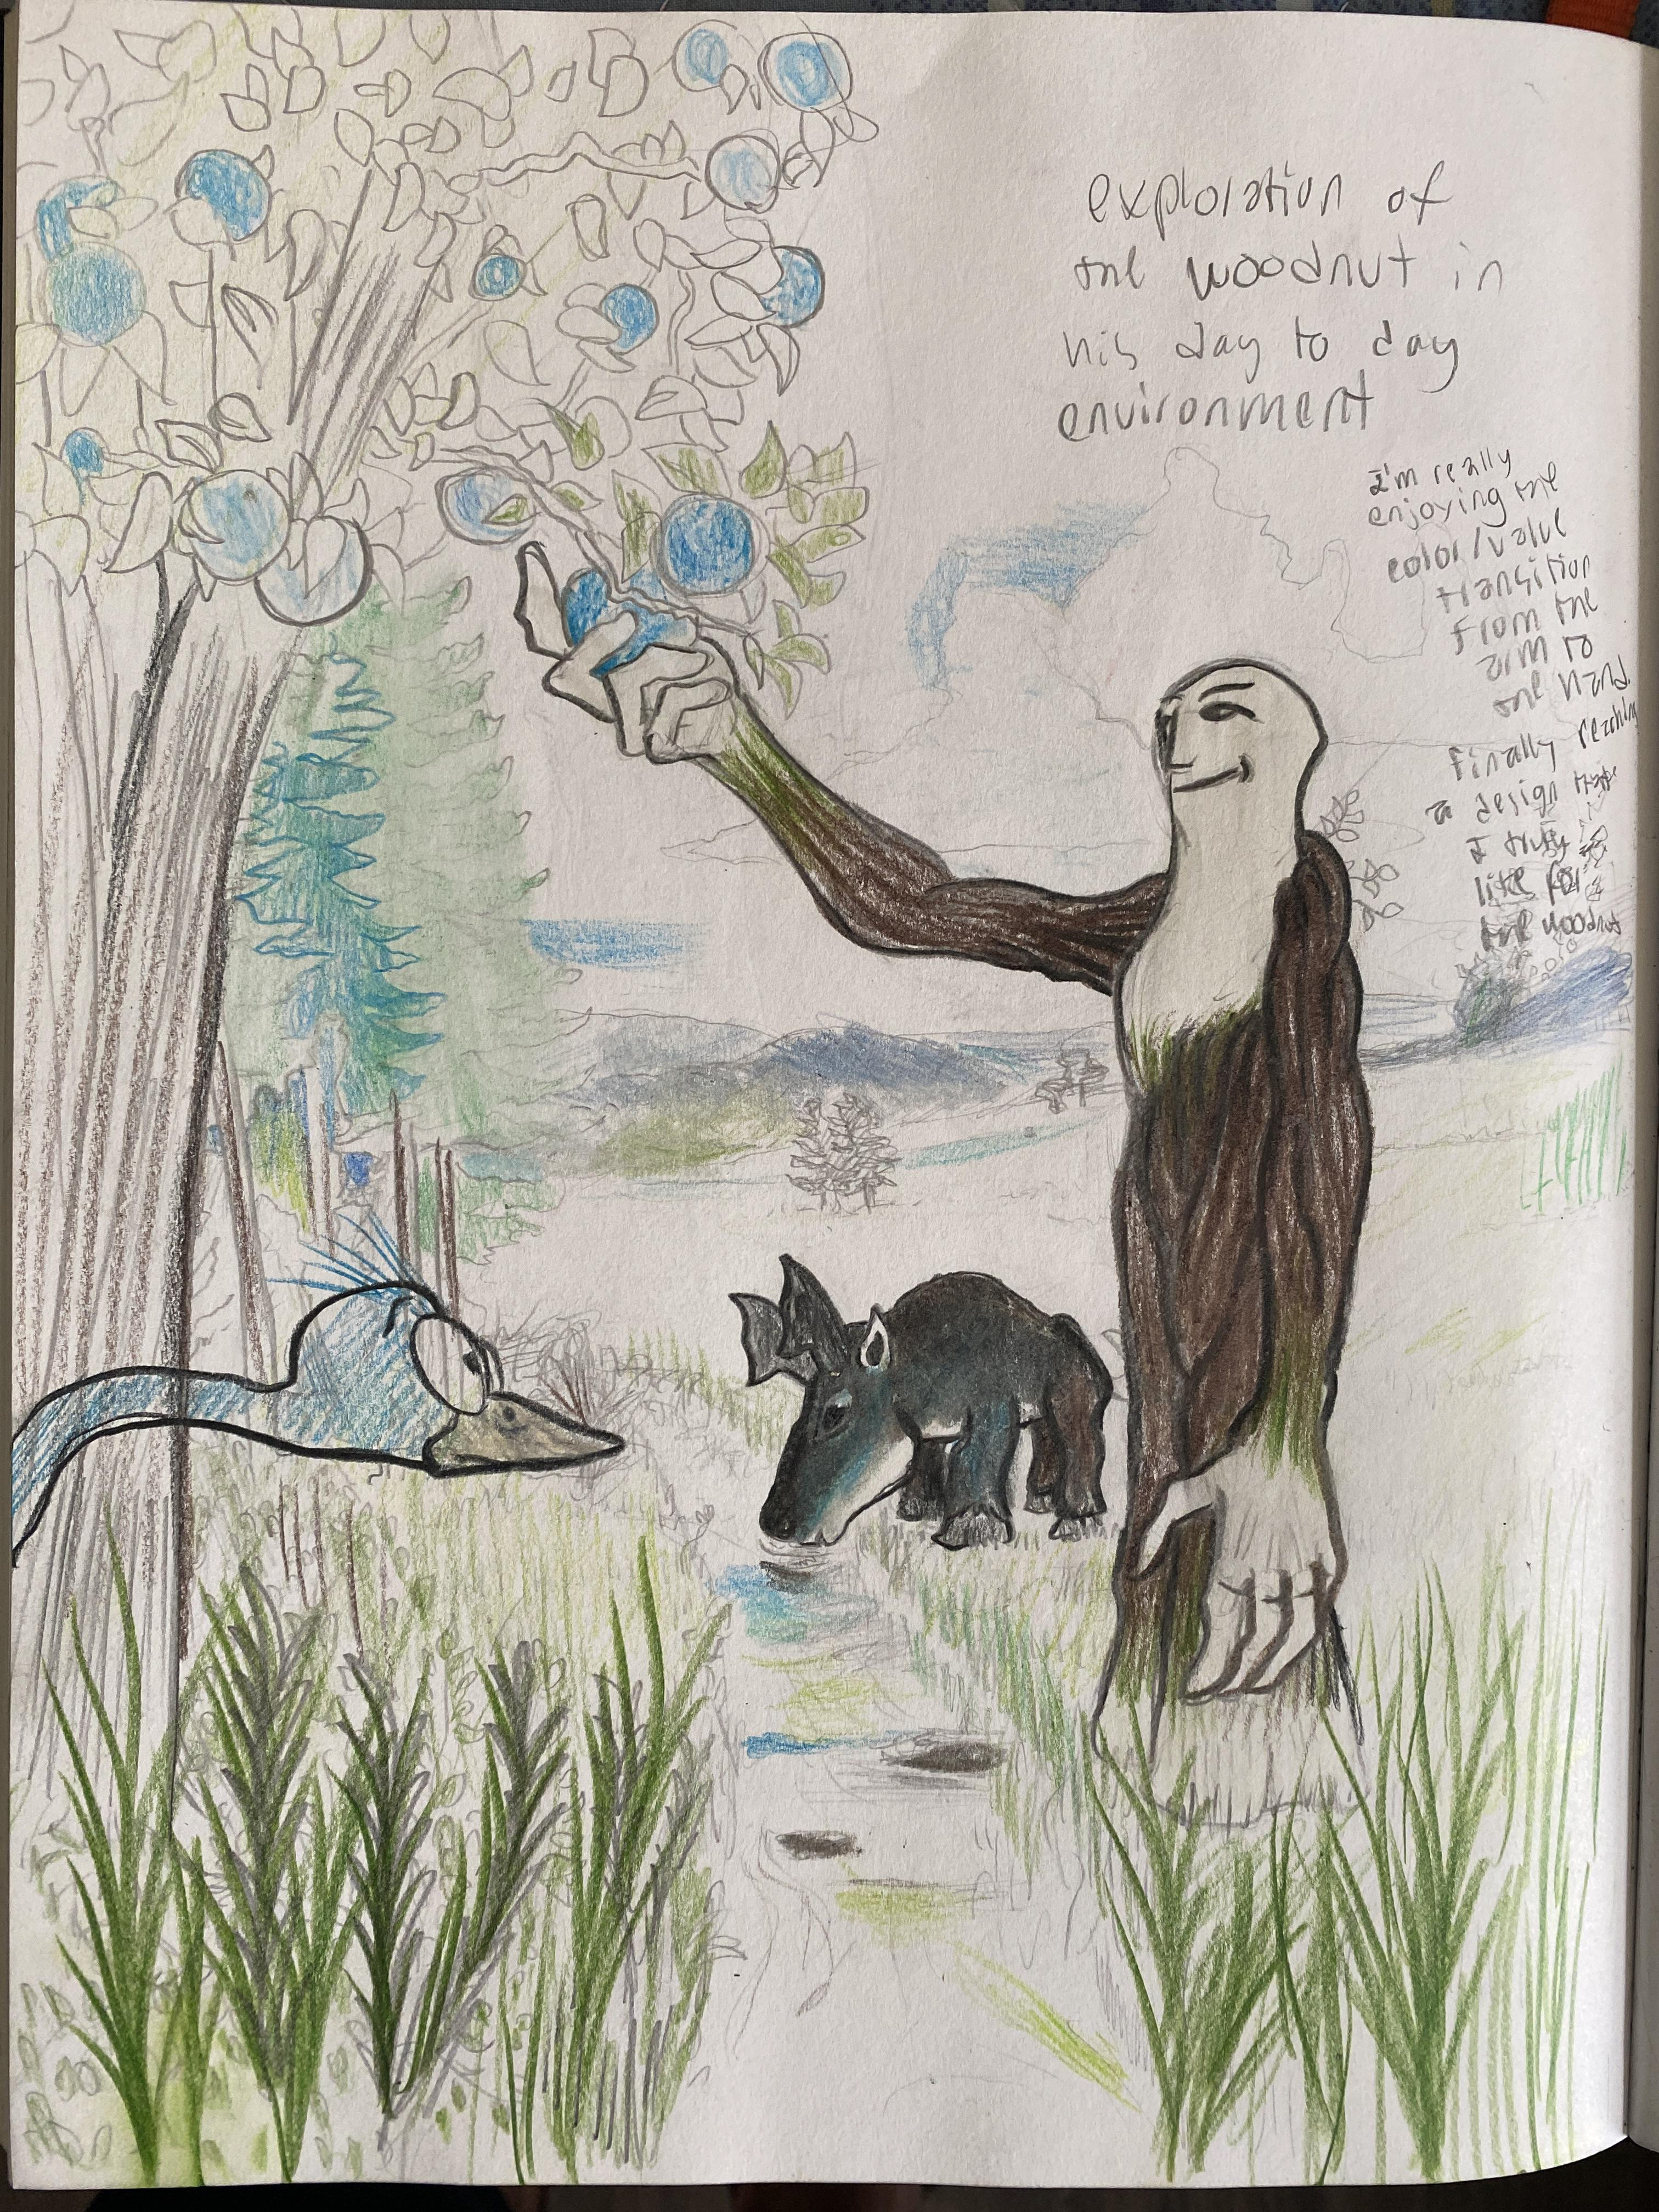 exploration of
the woodnut in
his day to day
environment
I'm really
enjoying the
color/value
transition
from the
arm to
the hand.
finally reaching
a design that
I truly
like for
the woodnut